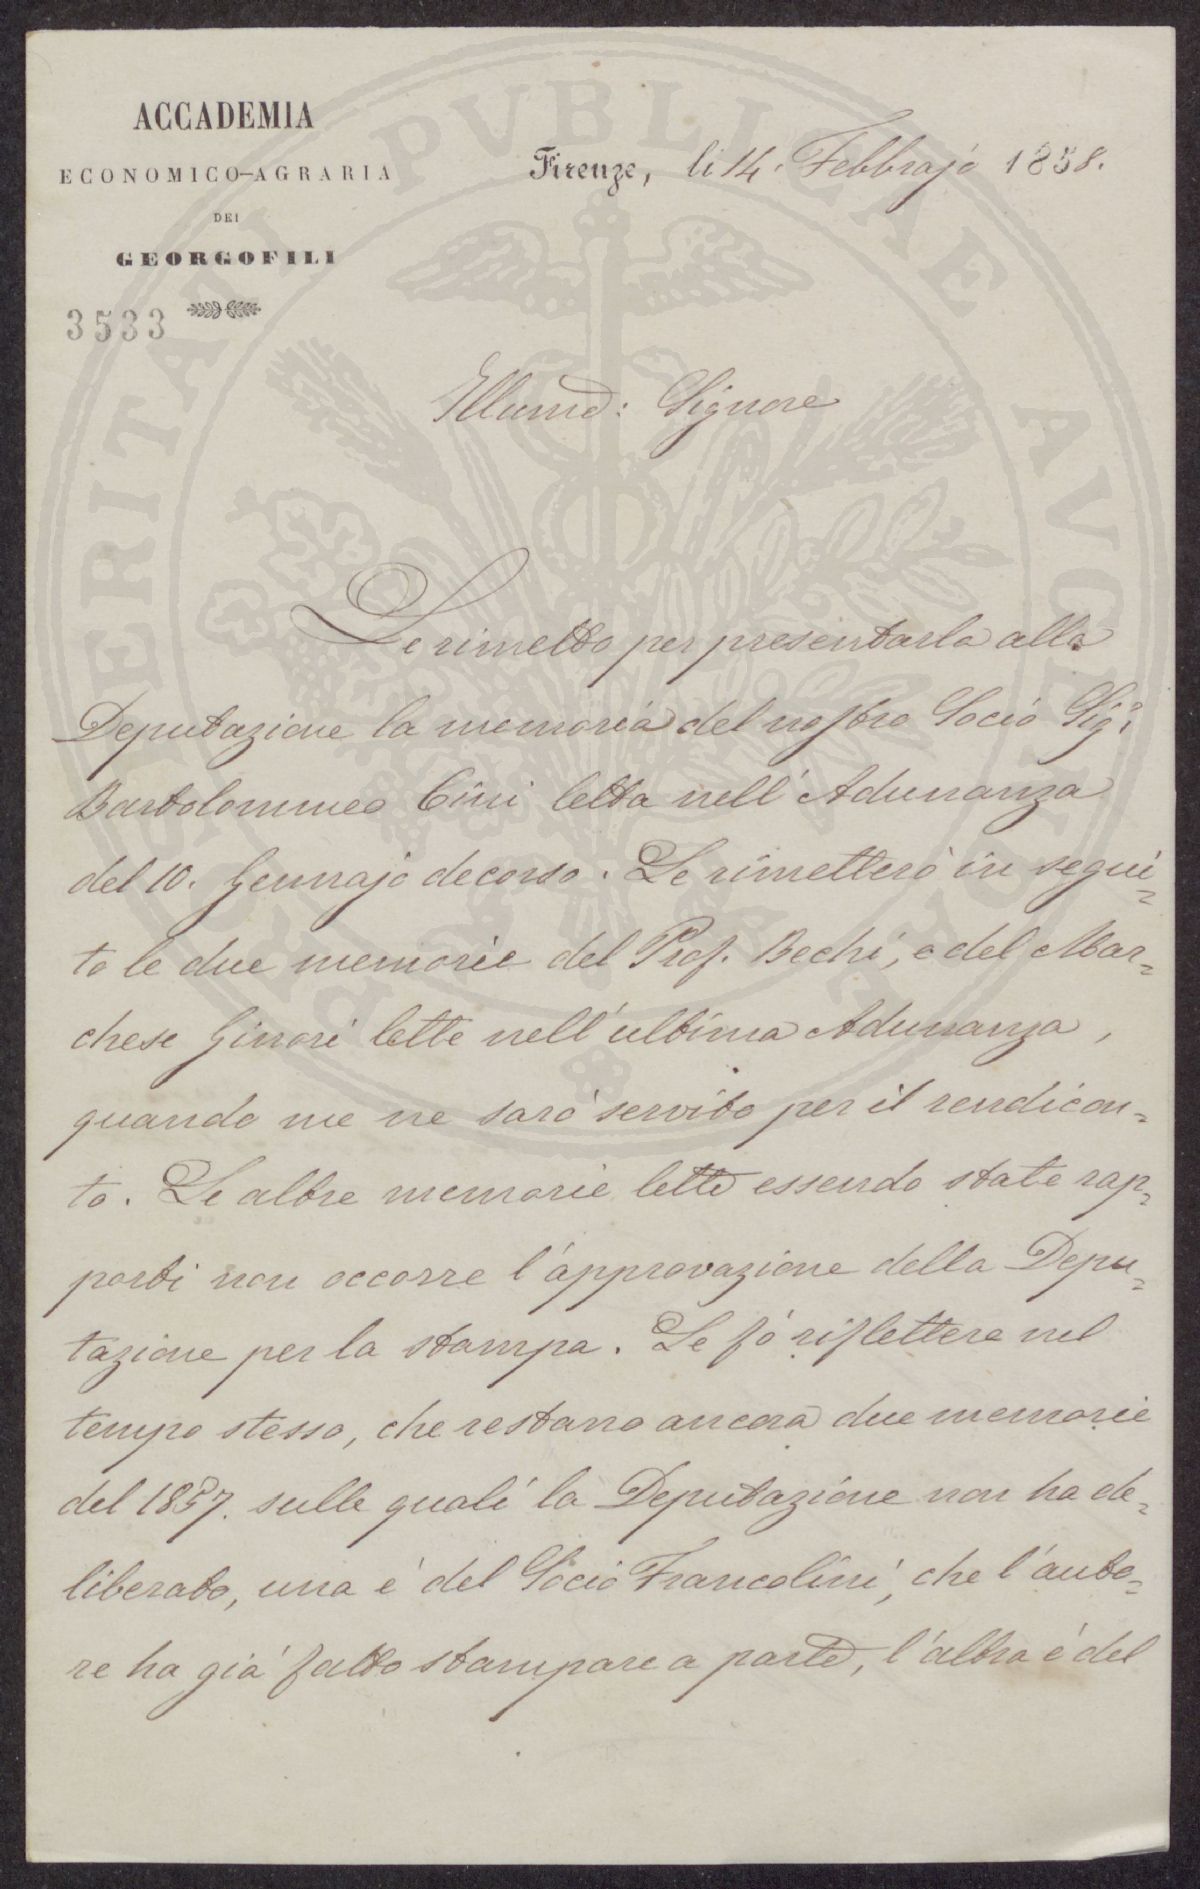 ACCADEMIA
ECONOMICO-AGRARIA
DEI
GEORGOFILI
3533
Firenze, li 14. Febbrajo 1858.
Illumo: Signore
Le rimetto per presentarla alla
Deputazione la memoria del nostro Socio Sigr:
Bartolommeo Cini letta nell'Adunanza
del 10. Gennajo decorso. Le rimetterò in segui=
to le due memorie del Prof. Bechi, e del Mar=
chese Ginori lette nell'ultima Adunanza,
quando me ne sarò servito per il rendicon=
to. Le altre memorie lette essendo state rap=
porti non occorre l'approvazione della Depu=
tazione per la stampa. Le fò riflettere nel
tempo stesso, che restano ancora due memorie
del 1857. sulle quali la Deputazione non ha de=
liberato, una è del Socio Francolini, che l'auto=
re ha già fatto stampare a parte, l'altra è del